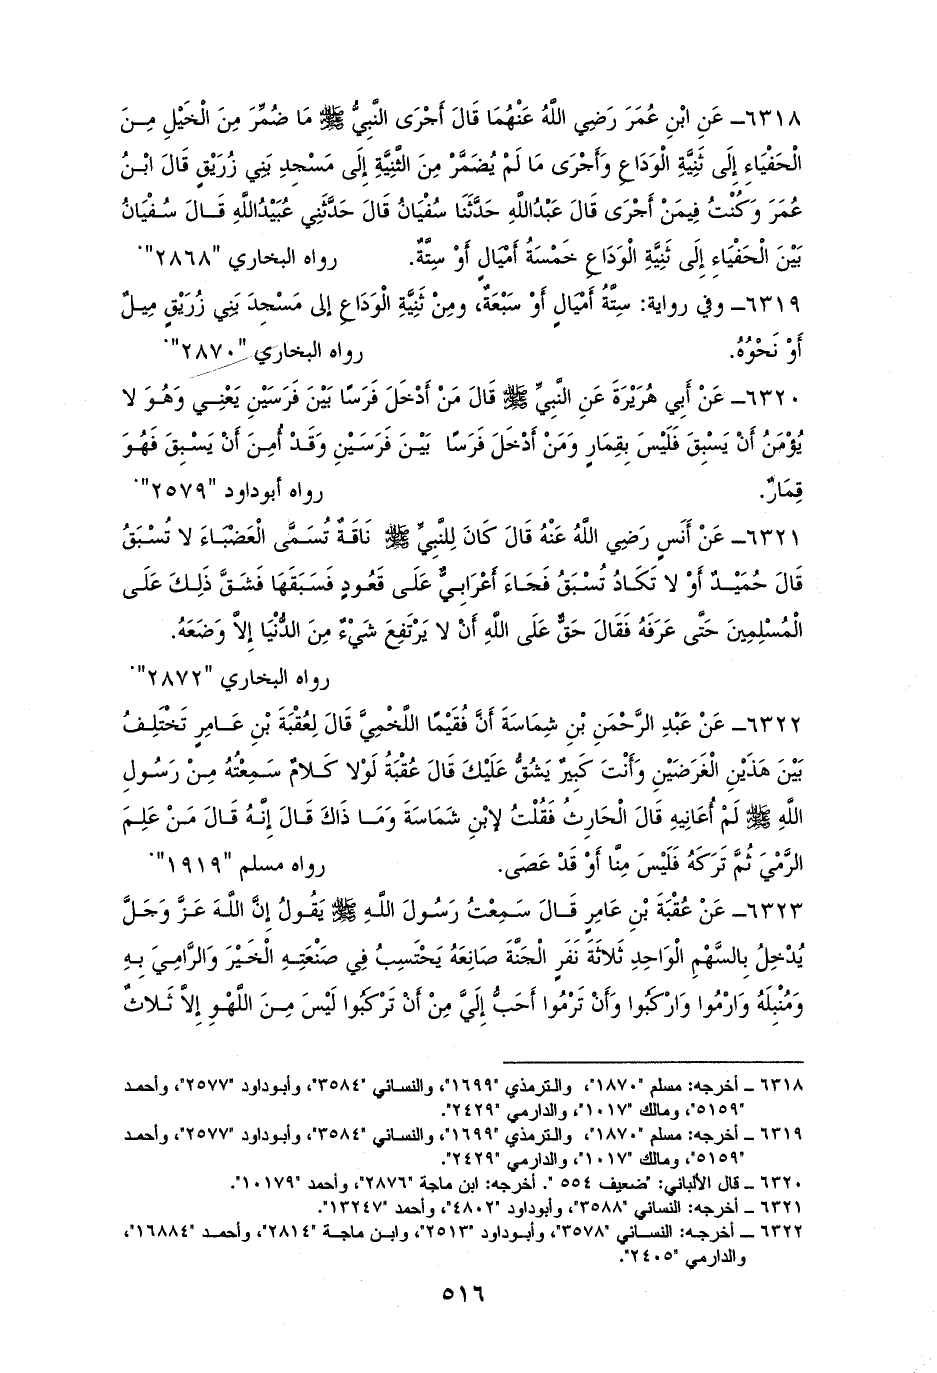 ٦٣١٨ـ عَنِ ابْنِ عُمَرَ رَضِي اللَّهُ عَنْهُمَا قَالَ أَجْرَى النَّبِيُّ ﷺ مَا ضُمِّرَ مِنَ الْخَيْلِ مِـنَ
الْحَفْيَاءِ إِلَى ثَنِيَّةِ الْوَدَاعِ وَأَجْرَى مَا لَمْ يُضَمَّرْ مِنَ الثَّنِيَّةِ إِلَى مَسْجِدِ بَنِي زُرَيْقٍ قَالَ ابْـنُ
عُمَرَ وَكُنْتُ فِيمَنْ أَجْرَى قَالَ عَبْدُاللَّهِ حَدَّثَنَا سُفْيَانُ قَالَ حَدَّثَنِي عُبَيْدُاللَّهِ قَـالَ سُـفْيَانُ
بَيْنَ الْحَفْيَاءِ إِلَى ثَنِيَّةِ الْوَدَاعِ خَمْسَةُ أَمْيَالٍ أَوْ سِتَّةٌ. رواه البخاري "٢٨٦٨".
٦٣١٩ـ وفي رواية: سِتَّةُ أَمْيَالٍ أَوْ سَبْعَةٌ، ومِنْ ثَنِيَّةِ الْوَدَاعِ إلى مَسْجِدَ بَنِي زُرَيْقٍ مِيـلٌ
أَوْ نَحْوُهُ. رواه البخاري "٢٨٧٠".
٦٣٢٠ـ عَنْ أَبِي هُرَيْرَةَ عَنِ النَّبِيِّ ﷺ قَالَ مَنْ أَدْخَلَ فَرَسًا بَيْنَ فَرَسَيْنِ يَعْنِـي وَهُـوَ لا
يُؤْمَنُ أَنْ يَسْبِقَ فَلَيْسَ بِقِمَارٍ وَمَنْ أَدْخَلَ فَرَسًا بَيْـنَ فَرَسَـيْنِ وَقَـدْ أُمِـنَ أَنْ يَسْـبِقَ فَهُـوَ
قِمَارٌ. رواه أبوداود "٢٥٧٩".
٦٣٢١ـ عَنْ أَنَسٍ رَضِي اللَّهُ عَنْهُ قَالَ كَانَ لِلنَّبِيِّ ﷺ نَاقَةٌ تُسَمَّى الْعَضْبَـاءَ لا تُسْـبَقُ
قَالَ حُمَيْـدٌ أَوْ لا تَكَـادُ تُسْبَقُ فَجَـاءَ أَعْرَابِـيٌّ عَلَـى قَعُودٍ فَسَبَقَهَا فَشَقَّ ذَلِـكَ عَلَـى
الْمُسْلِمِينَ حَتَّى عَرَفَهُ فَقَالَ حَقٌّ عَلَى اللَّهِ أَنْ لا يَرْتَفِعَ شَيْءٌ مِنَ الدُّنْيَا إِلاَّ وَضَعَهُ.
رواه البخاري "٢٨٧٢".
٦٣٢٢ـ عَنْ عَبْدِ الرَّحْمَنِ بْنِ شِمَاسَةَ أَنَّ فُقَيْمًا اللَّخْمِيَّ قَالَ لِعُقْبَةَ بْنِ عَـامِرٍ تَخْتَلِـفُ
بَيْنَ هَذَيْنِ الْغَرَضَيْنِ وَأَنْتَ كَبِيرٌ يَشُقُّ عَلَيْكَ قَالَ عُقْبَةُ لَوْلا كَـلامٌ سَـمِعْتُهُ مِـنْ رَسُـولِ
اللَّهِ ﷺ لَمْ أُعَانِيهِ قَالَ الْحَارِثُ فَقُلْتُ لابْنِ شَمَاسَةَ وَمَـا ذَاكَ قَـالَ إِنَّـهُ قَـالَ مَـنْ عَلِـمَ
الرَّمْيَ ثُمَّ تَرَكَهُ فَلَيْسَ مِنَّا أَوْ قَدْ عَصَى. رواه مسلم "١٩١٩".
٦٣٢٣ـ عَنْ عُقْبَةَ بْنِ عَامِرٍ قَـالَ سَـمِعْتُ رَسُـولَ اللَّـهِ ﷺ يَقُـولُ إِنَّ اللَّـهَ عَـزَّ وَجَـلَّ
يُدْخِلُ بِالسَّهْمِ الْوَاحِدِ ثَلاثَةَ نَفَرٍ الْجَنَّةَ صَانِعَهُ يَحْتَسِبُ فِي صَنْعَتِـهِ الْخَيْرَ وَالرَّامِيَ بِـهِ
وَمُنْبِلَهُ وَارْمُوا وَارْكَبُوا وَأَنْ تَرْمُوا أَحَبُّ إِلَيَّ مِنْ أَنْ تَرْكَبُوا لَيْسَ مِـنَ اللَّهْـوِ إِلاَّ ثَـلاثٌ
٦٣١٨ ـ أخرجه: مسلم "١٨٧٠"، والترمذي "١٦٩٩"، والنسائي "٣٥٨٤"، وأبوداود "٢٥٧٧"، وأحمد
"٥١٥٩"، ومالك "١٠١٧"، والدارمي "٢٤٢٩".
٦٣١٩ ـ أخرجه: مسلم "١٨٧٠"، والترمذي "١٦٩٩"، والنسائي "٣٥٨٤"، وأبوداود "٢٥٧٧"، وأحمد
"٥١٥٩"، ومالك "١٠١٧"، والدارمي "٢٤٢٩".
٦٣٢٠ ـ قال الألباني: "ضعيف ٥٥٤ ". أخرجه: ابن ماجة "٢٨٧٦"، وأحمد "١٠١٧٩".
٦٣٢١ ـ أخرجه: النسائي "٣٥٨٨"، وأبوداود "٤٨٠٢"، وأحمد "١٣٢٤٧".
٦٣٢٢ ـ أخرجـه: النسـائي "٣٥٧٨"، وأبـوداود "٢٥١٣"، وابـن ماجـة "٢٨١٤"، وأحمـد "١٦٨٨٤"،
والدارمي "٢٤٠٥".
٥١٦